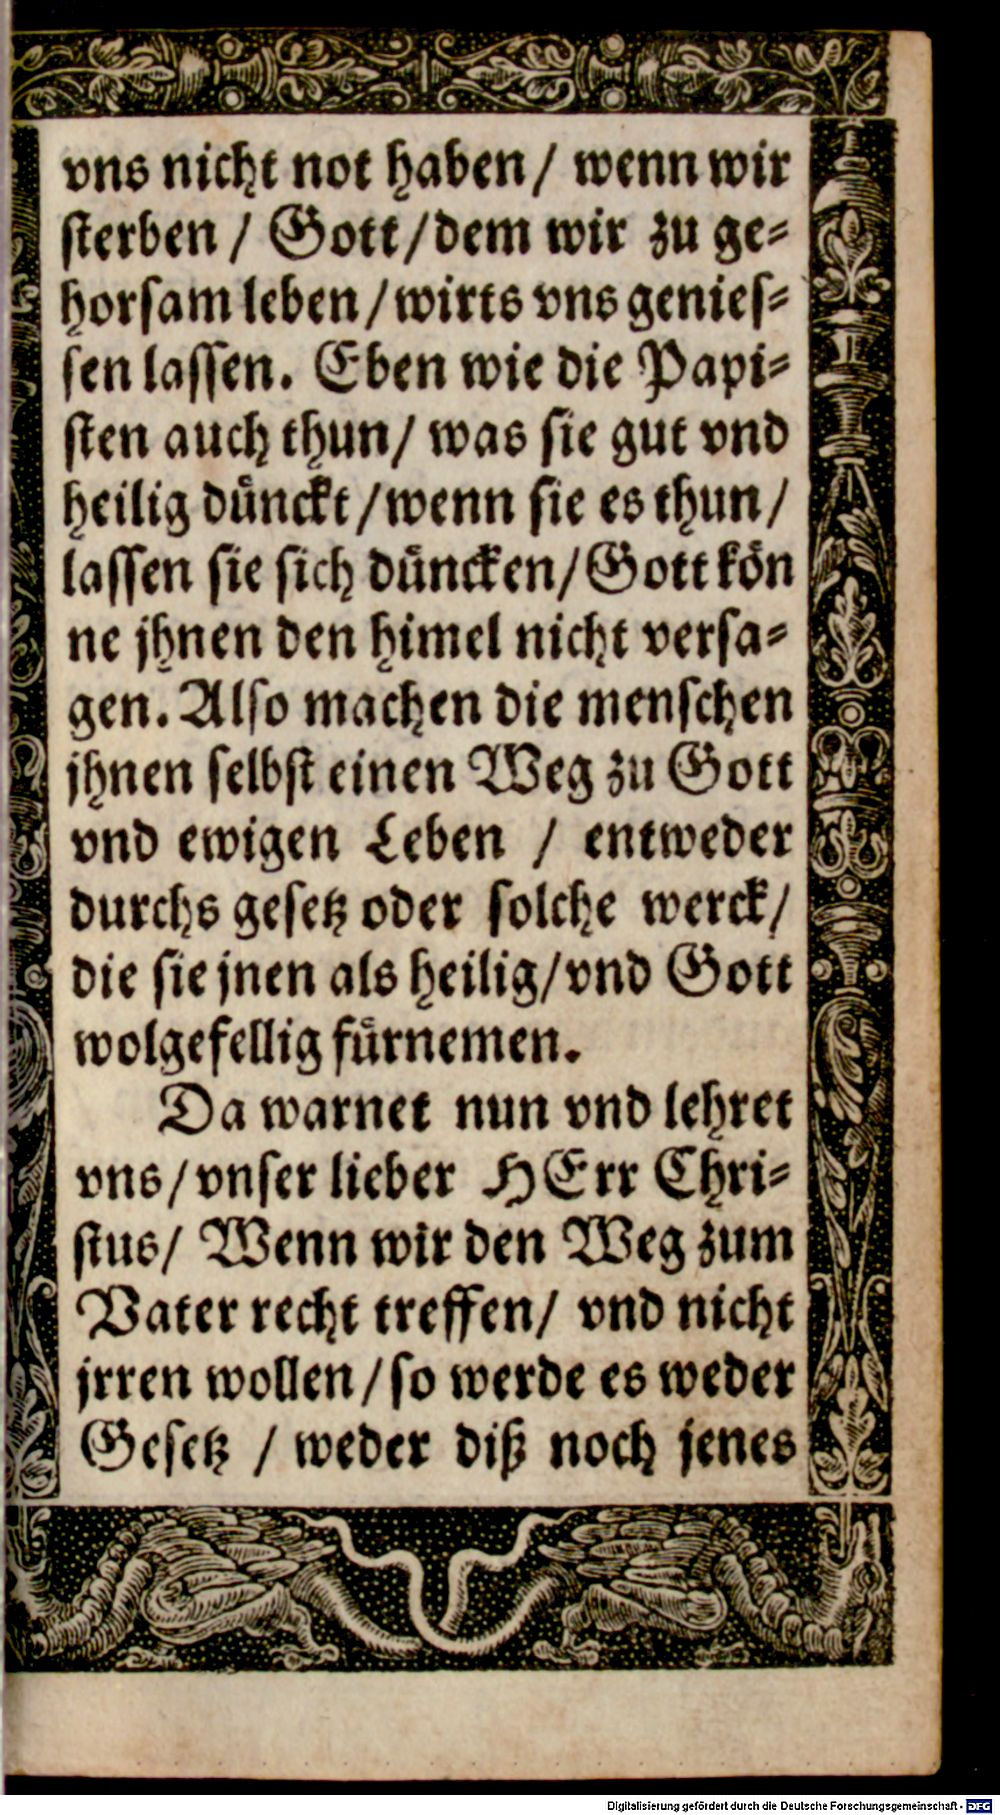 vns nicht not haben / wenn wir
sterben / Gott / dem wir zu ge⸗
horsam leben / wirts vns genies⸗
sen lassen. Eben wie die Papi⸗
sten auch thun / was sie gut vnd
heilig dünckt / wenn sie es thun /
lassen sie sich düncken / Gott kön
ne jhnen den himel nicht versa⸗
gen. Also machen die menschen
jhnen selbst einen Weg zu Gott
vnd ewigen Leben / entweder
durchs gesetz oder solche werck /
die sie jnen als heilig / vnd Gott
wolgefellig fürnemen.
Da warnet nun vnd lehret
vns / vnser lieber HErr Chri⸗
stus / Wenn wir den Weg zum
Vater recht treffen / vnd nicht
jrren wollen / so werde es weder
Gesetz / weder diß noch jenes
Digitalisierung gefördert durch die Deutsche Forschungsgemeinschaft - DFG